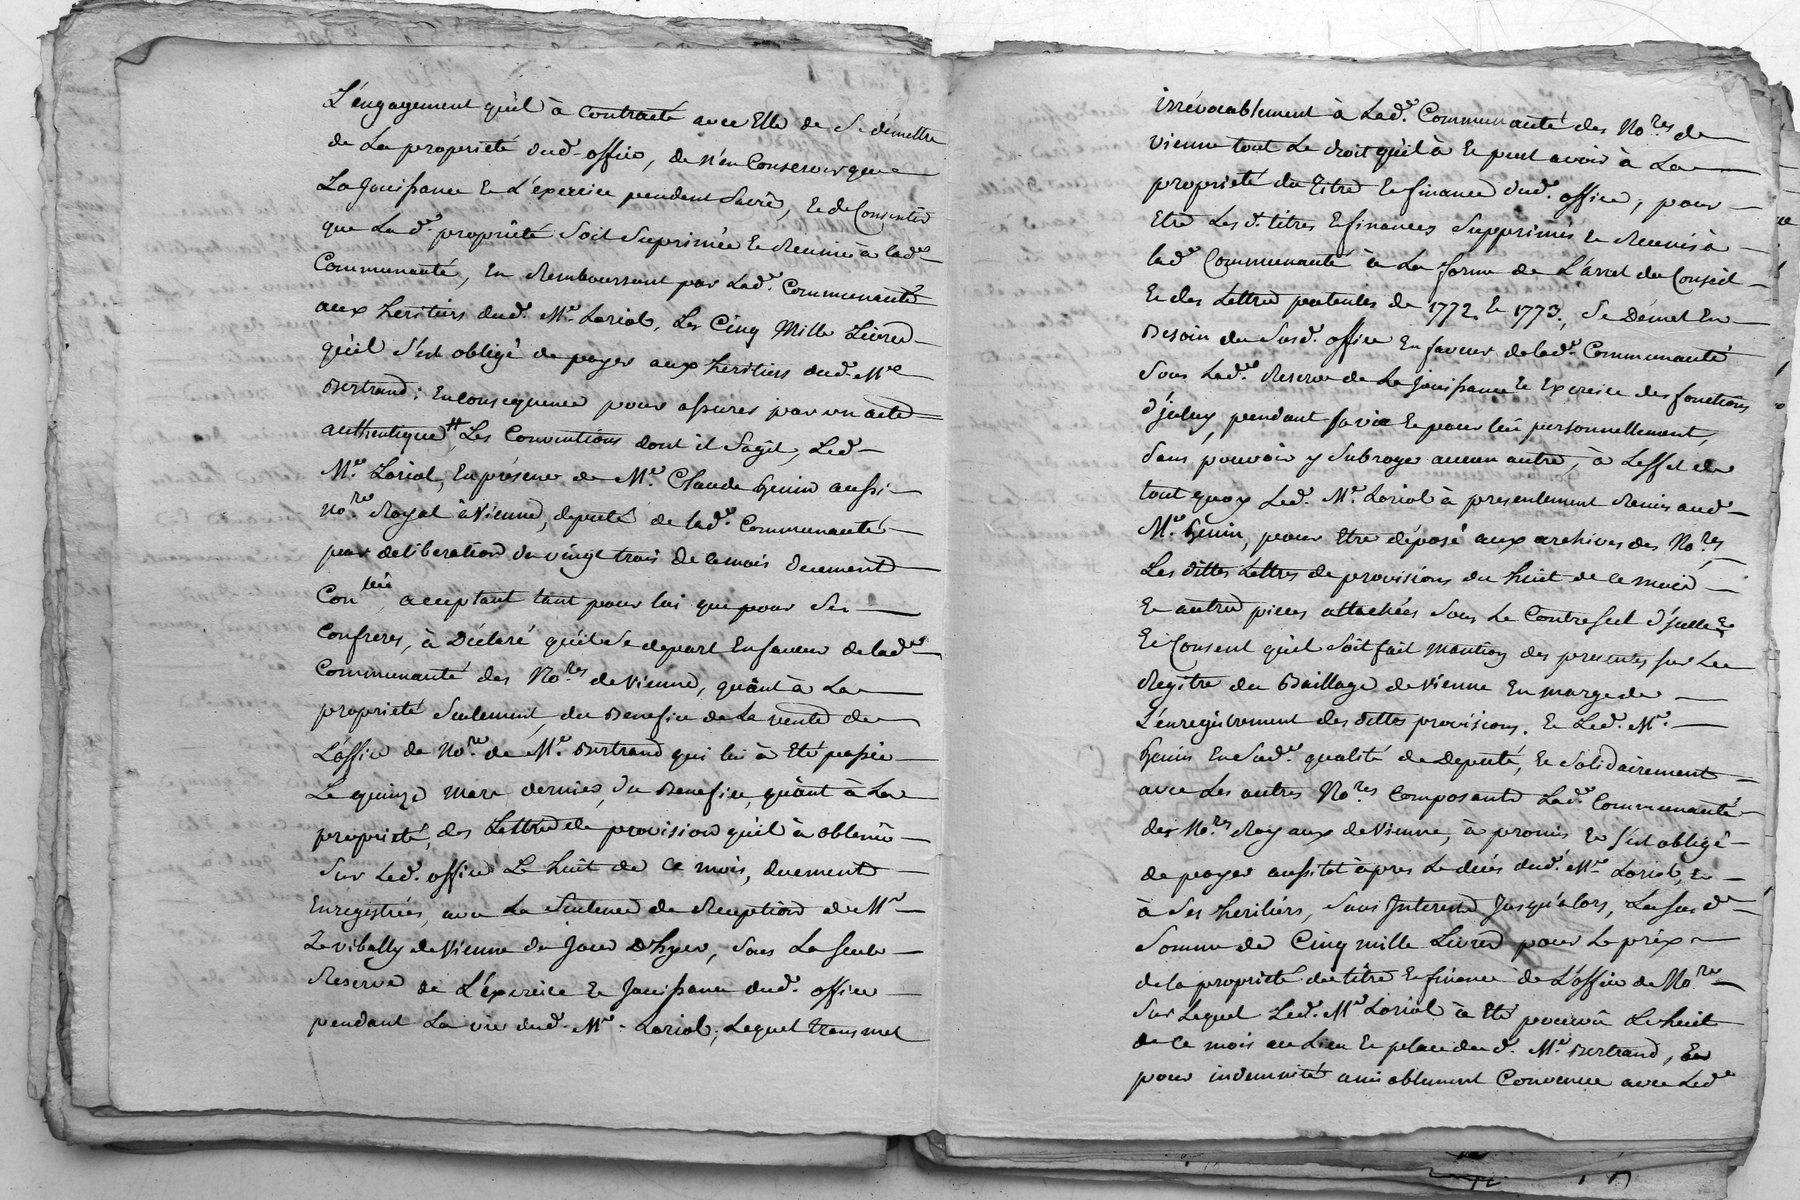 L'engagement qu'il à contracté avec Elle de Se démettre
de La propriété dud. office, de n'en Conserver que
La Jouissance Et L'exercice pendant Savie, Et de Consentir
que Lad.e propriété Soit Suprimée Et Reunie à lad.e
Communauté, En Remboursant par Lad.e Communauté
aux heritiers dud. M.e Loriol, Les Cinq Mille Livres
qu'il s'est obligé de payer aux heritiers dud. M.e
Bertrand; En Consequence pour assurer par un acte
authentique # Les Conventions dont il S'agit, Led.
M.e Loriol, En présence de M.e Claude henin aussi
No.re Royal à Vienne, deputé de lad.e Communauté
par deliberation du vingt trois de ce mois duement
Con.lée, acceptant tant pour lui que pour Ses
Confreres, à Déclaré qu'il Se depart En faveur de lad.e
Communauté des No.res de Vienne, quânt à La
propriété Seulement, du Benefice de La vente de
L'office de No.re de M.e Bertrand qui lui à Eté passée
Le quinze Mars dernier, du Benefice, quânt à La
propriété, des Lettres de provision qu'il à obtenû
Sur Led. office Le huit de Ce mois, duement
Enregistrées, avec La Sentence de Reception de M.r
Levibally de Vienne du Jour D'hyer, Sous La Seule
Reserve de L'exercice Et Jouissance dud. office
pendant La vie dud. M.e Loriol; Lequel transmet
irrévocablement à Lad.e Communauté des No.res de
Vienne tout Le droit qu'il à Et peut avoir à La
propriété du titre Et finance dud. office, pour
Etre Les d. titres Et finances Supprimés Et Reunis à
lad.e Communauté à La forme de L'arret du Conseil
Et des Lettres patentes de 1772 Et 1773, Se Démet En
Besoin du Susd. office En faveur de lad.e Communauté
Sous Lad.e Reserve de La Jouissance Et Exercice des fonctions
d'jceluy, pendant Savie Et pour lui personnellement,
Sans pouvoir y Subroger aucun autre, à L'effet de
tout quoy Led. M.e Loriol à presentement Remis aud.
M.e henin, pour Etre déposé aux archives des No.res
Les dittes Lettres de provisions du huit de Ce mois
Et autres pieces attachées Sous Le Contrescel d'jcelles
Et Consent qu'il Soit fait mention des presentes sur Le
Registre du Baillage de Vienne En marge de
L'enregistrement des dittes provisions. Et Led. M.e
henin En Sad.e qualité de Deputé, Et Solidairement
avec Les autres No.res Composants Lad.e Communauté
des No.res Royaux de Vienne, à promis Et s'est obligé
de payer aussitôt après Le decés dud. M.e Loriol, Et
à Ses heritiers, Sans Interets Jusqu'alors, La Susd.e
Somme de Cinq mille Livres pour Le prix
de la propriété du titre Et finance de L'office de No.re
Sur Lequel Led. M.e Loriol à Eté pourvû Le huit
de Ce mois au Lieu Et place dud. M.e Bertrand, Et
pour indemnité amiablement Convenue avec Led.e